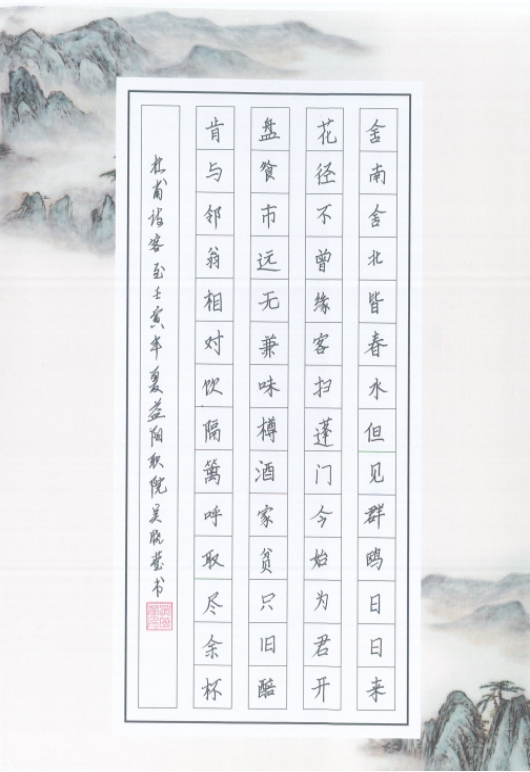 舍南舍北皆春水但见群鸥日日来
花径不曾缘客扫蓬门今始为君开
盘飧市远无兼味樽酒家贫只旧醅
肯与邻翁相对饮隔篱呼取尽余杯
杜甫诗客至壬寅年夏益阳职院吴晓艺书